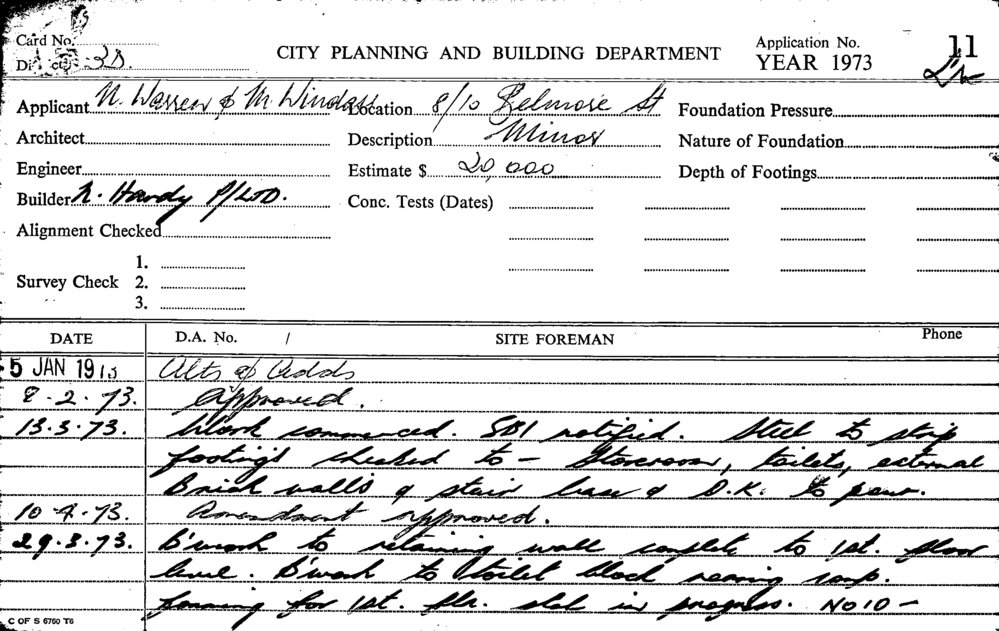 Card No.
District 2D.
CITY PLANNING AND BUILDING DEPARTMENT
Application No. 11
YEAR 1973
Applicant N. Warren & M Windas
Location 8/10 Belmore St
Foundation Pressure
Architect
Description Minor
Nature of Foundation
Engineer
Estimate $ 20,000
Depth of Footings
Builder N. Hardy P/LTD.
Conc. Tests (Dates)
Alignment Checked
Survey Check
1.
2.
3.
DATE D.A. No. / SITE FOREMAN Phone
5 JAN 1973 Alts & Adds
8.2.73. Approved.
13.3.73. Work commenced. SBI notified. Steel to strip
footings checked to – Storeroom, toilets, external
Brick walls & stair base & O.K. to pour.
10.4.73. Amendment approved.
29.3.73. B'work to retaining wall complete to 1st. floor
level. B'work to toilet block nearing comp.
forming for 1st. flr. slab in progress. NO 10 –
C OF S 6760 T6